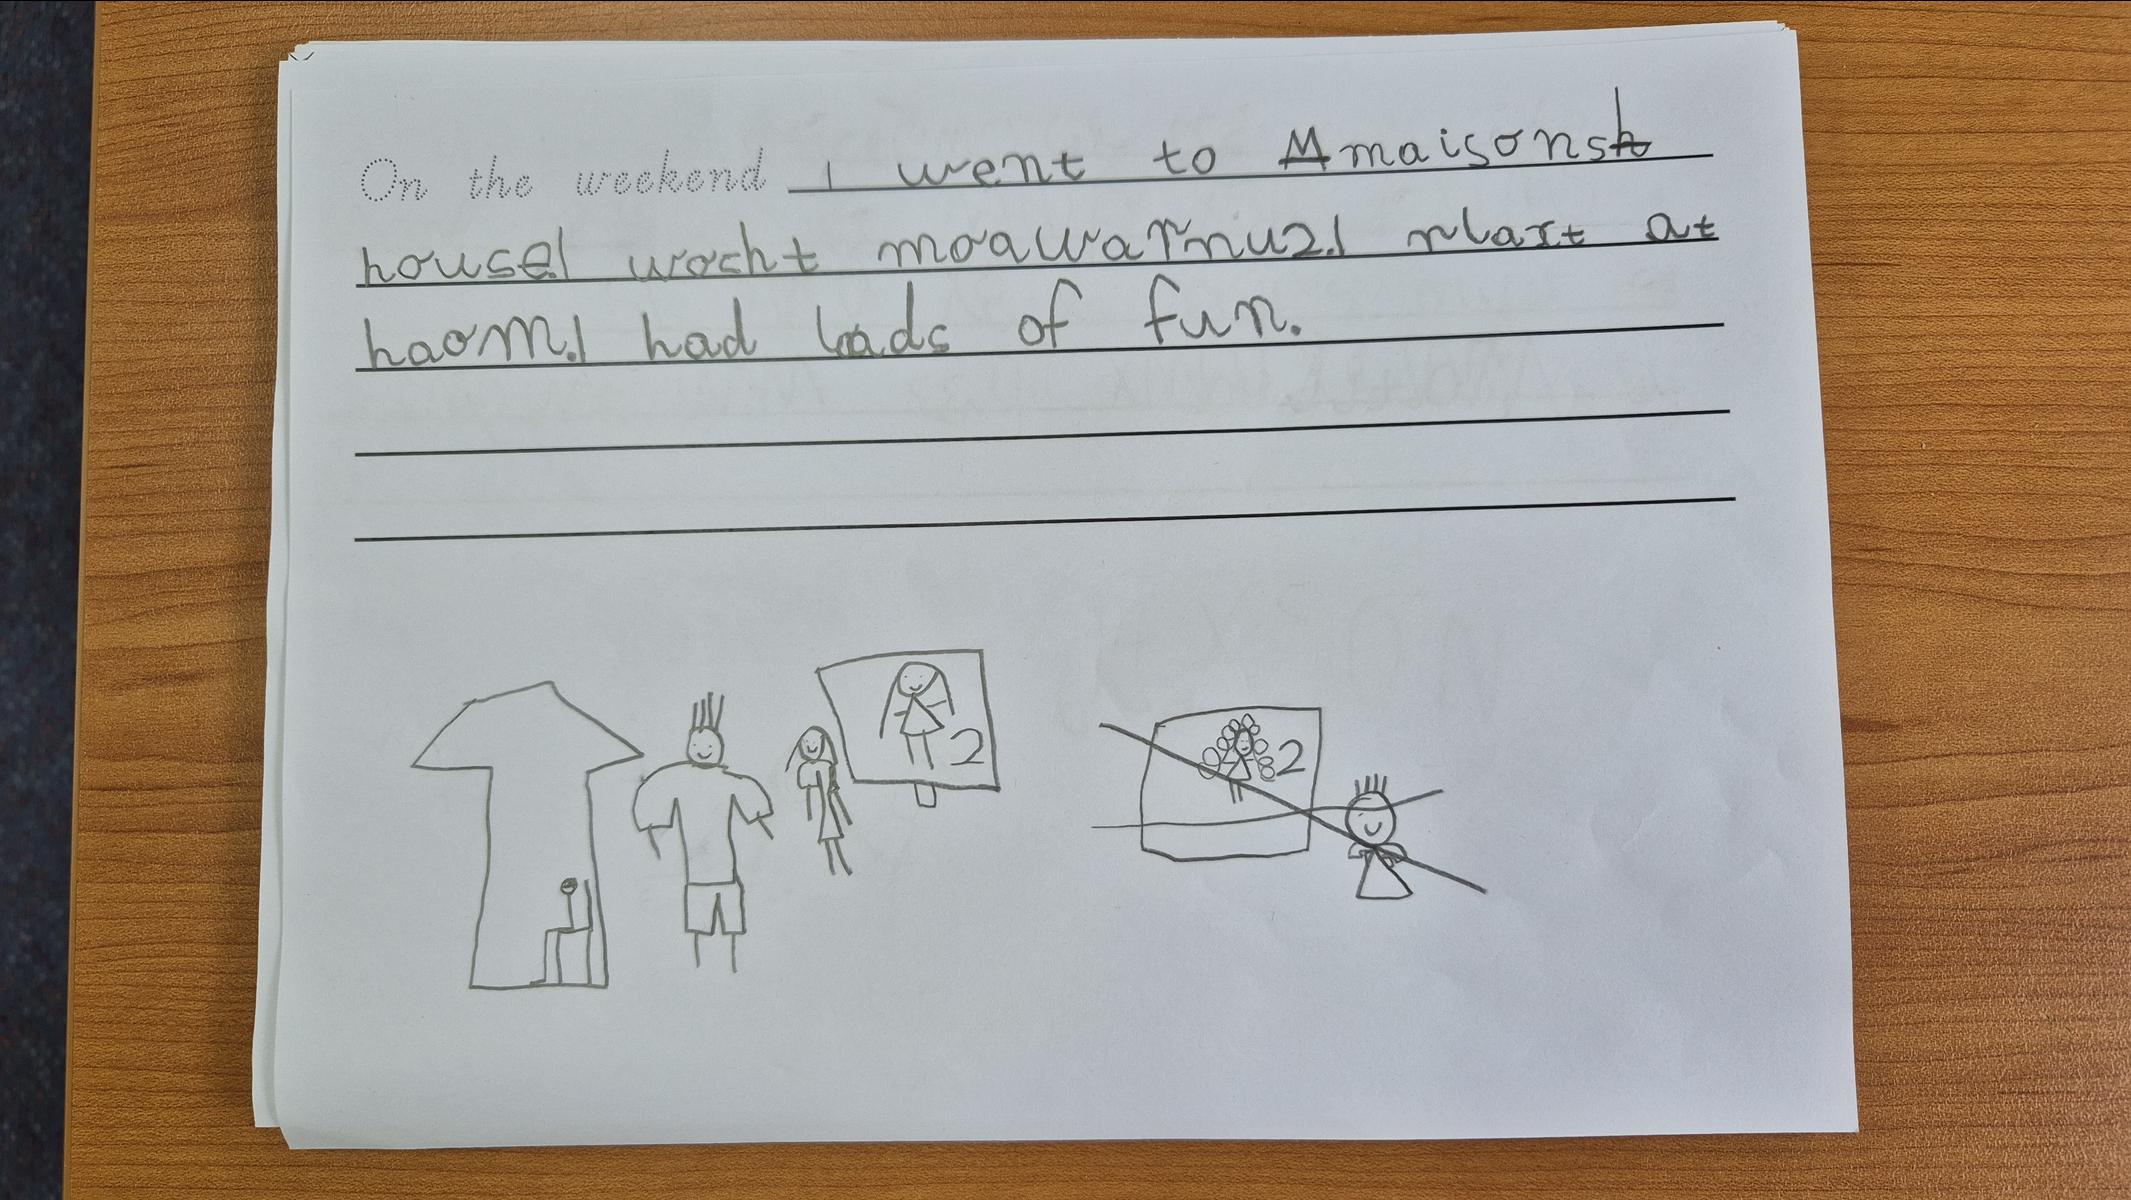 On the weekend I went to maisons
house I wocht moawarnu2. I plaxt at
haom. I had loads of fun.
2
2